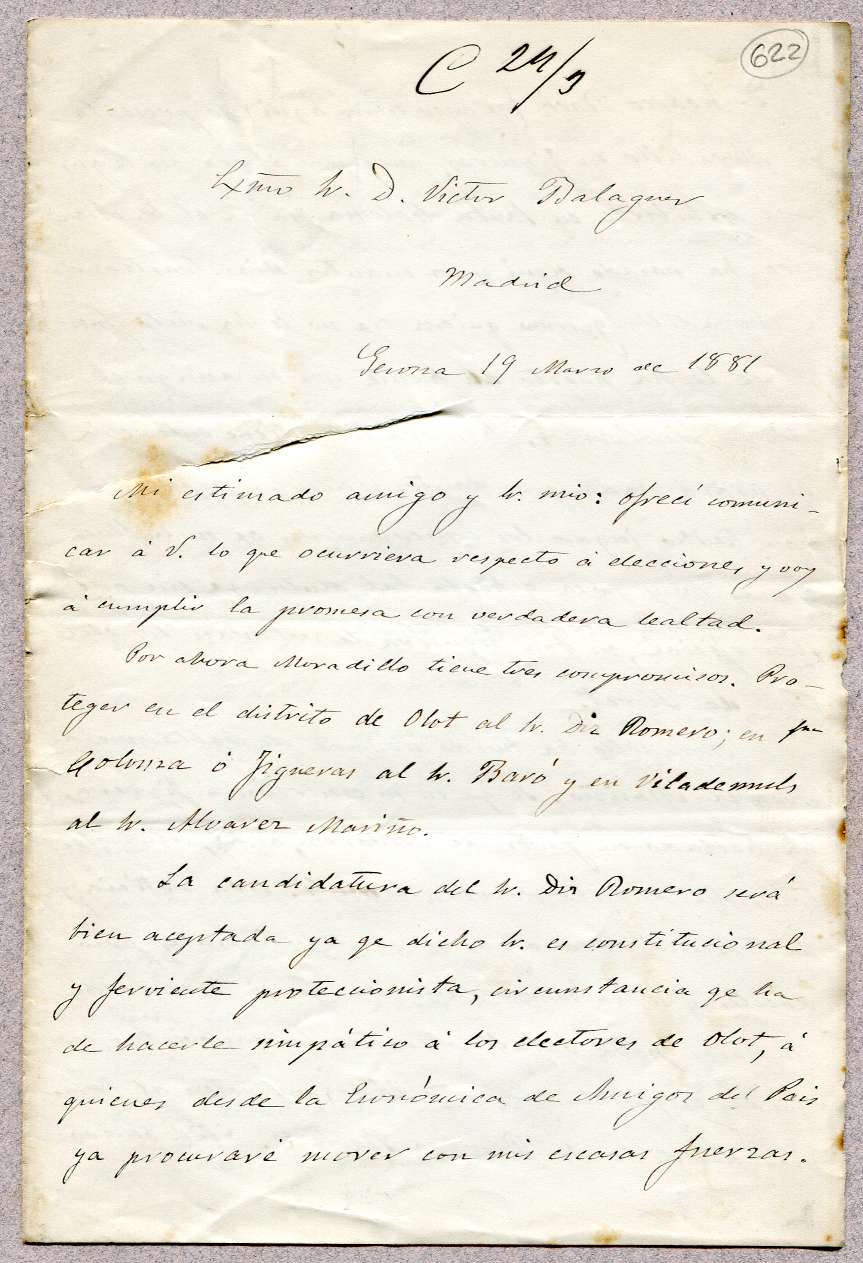 C 24/3
622
Exmo Sr. D. Victor Balaguer
Madrid
Gerona 19 Marzo de 1881
Mi estimado amigo y Sr. mio: ofrecí comuni-
car á V. lo que ocurriera respecto á elecciones, y voy
á cumplir la promesa con verdadera lealtad.
Por ahora Moradillo tiene tres compromisos. Pro-
teger en el distrito de Olot al Sr. Diz Romero; en
ó Figueras al Sr. Baró y en Vilademuls
al Sr. Alvarez Mariño.
La candidatura del Sr. Diz Romero será
bien aceptada ya qe dicho Sr. es constitucional
y ferviente proteccionista, circunstancia qe ha
de hacerle simpático á los electores de Olot, á
quienes desde la Económica de Amigos del Pais
ya procuraré mover con mis escasas fuerzas.